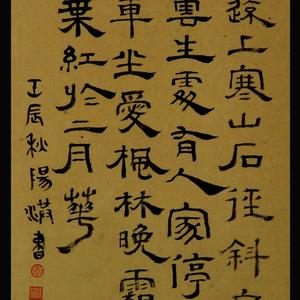 遠上寒山石徑斜白
雲生處有人家停
車坐愛楓林晚霜
葉紅於二月華
壬辰秋陽書